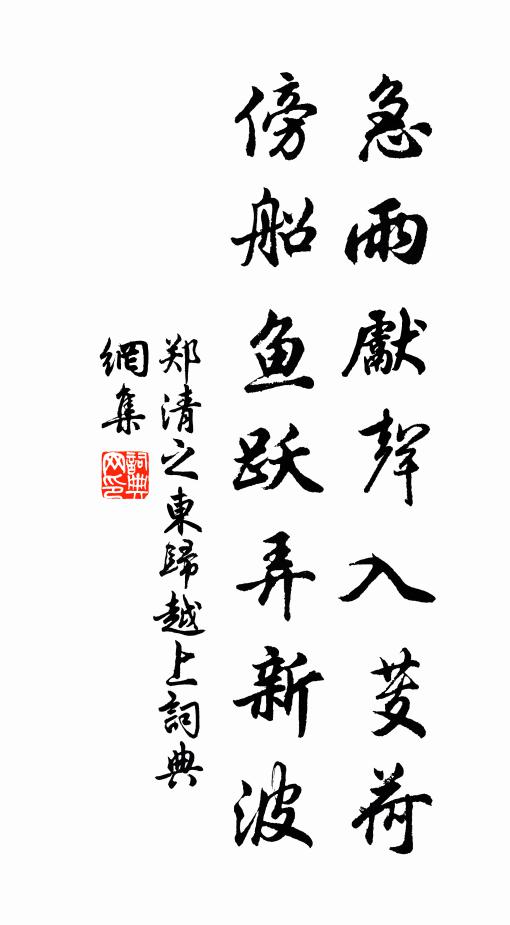 急雨獻聲入芰荷
傍船鱼跃弄新波
郑清之東歸越上詞典
網集
詞典网印